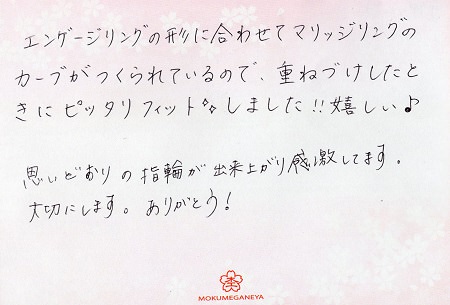 エンゲージリングの形に合わせてマリッジリングの
カーブがつくられているので、重ねづけしたと
きにピッタリフィット✨しました!!嬉しい♪
思いどおりの指輪が出来上がり感激してます。
大切にします。ありがとう!
MOKUMEGANEYA